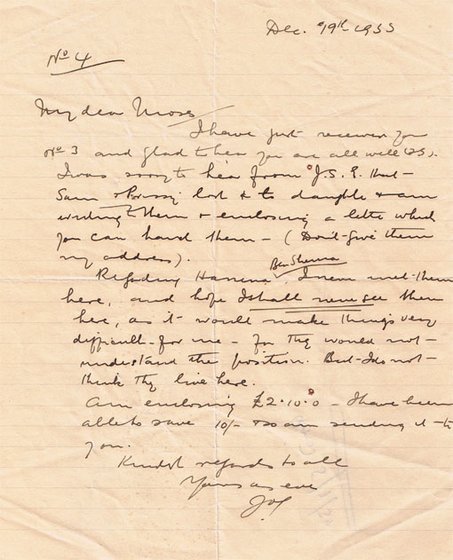 Dec. 1955
No 4
My dear Moses
I have just received your
No 3 and glad to hear you are all well (25).
I was sorry to hear from J.S.E. that
Sam & lost & to daughter & am
writing to them & enclosing a letter which
you can hand them - (Don't give them
my address).
Ben Shemna
Regarding Hannna, I never met them
here, and hope I shall never see them
here, as it would make things very
difficult for me - for they would not
understand the position. But I do not
think they live here.
Am enclosing £2.10.0 - I have been
able to save 10/- & so am sending it to
you.
Kindest regards to all
Yours as ever